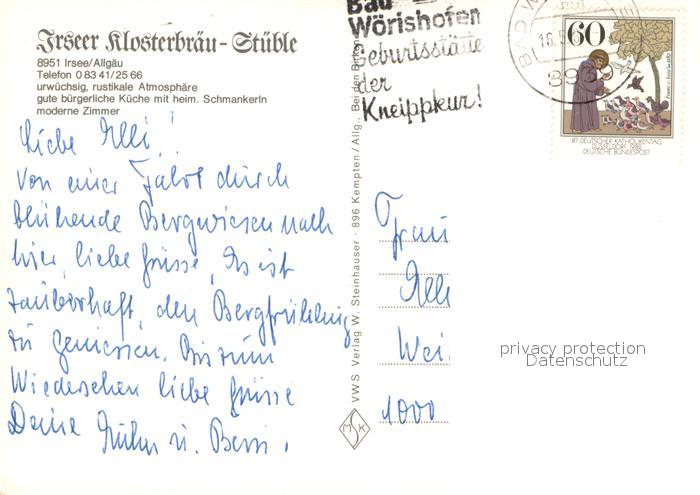 Irseer Klosterbräu-Stüble
8951 Irsee/Allgäu
Telefon 0 83 41/25 66
urwüchsig, rustikale Atmosphäre
gute bürgerliche Küche mit heim. Schmankerln
moderne Zimmer
Liebe Elli!
Von einer Fahrt durch
blühende Bergwiesen nach
hier, liebe Grüsse, Es ist
zauberhaft, den Bergfrühling
zu geniessen. Bis zum
Wiedersehen liebe Grüsse
Deine u.
VWS Verlag W. Steinhauser · 896 Kempten/Allg., Bei den Birken
Bad
Wörishofen
Geburtsstätte
der
Kneippkur!
BAD W
8939
60
87. DEUTSCHER KATHOLIKENTAG
DÜSSELDORF 1982
DEUTSCHE BUNDESPOST
Frau
Elli
Wei
1000
privacy protection
Datenschutz